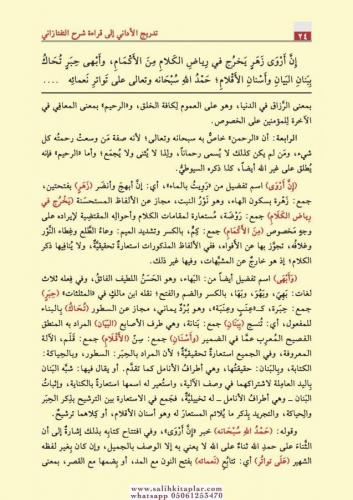 ٢٤
تدريج الأداني إلى قراءة شرح التفتازاني
إِنَّ أَرْوَى زَهَرٍ يَخرُج في رِياضِ الكَلام مِنَ الأَكْمَامِ، وأَبْهى حِبَرٍ تُحَاكُ
بِبَنانِ البَيانِ وأَسْنانِ الأَقْلامِ؛ حَمْدُ اللهِ سُبْحَانَه وتعالى على تَواتُرِ نَعمائِهِ ....
بمعنى الرزّاق في الدنيا، وهو على العموم لِكافة الخلق، و«الرحيم» بمعنى المعافِي في
الآخرة للمؤمنين على الخصوص.
الرابعة: أن «الرحمن» خاصٌّ به سبحانه وتعالى؛ لأنه صفة مَن وسعتْ رحمتُه كل
شيء، ومَن لم يكن كذلك لا يسمى رحماناً، ولذا لا يُثنى ولا يُجمَع؛ وأما «الرحيم» فإنه
يُطلق على غير الله أيضاً. كذا ذكر السيوطيُّ.
(إِنَّ أَرْوَى) اسم تفضيل من «رَوِيتُ بالماء»، أي: إنَّ أبهجَ وأنضرَ (زَهَرٍ) بفتحتين،
جمع: زَهرة بسكون الهاء، وهو نَوْرُ النبت، مجاز عن الألفاظ المستحسَنة (يَخْرُج في
رِياض الكَلَام) جمع: رَوْضة، مُستعارة لمقامات الكلام وأحوالِه المقتضِية لإيراده على
وجهٍ مَخصوص (مِنَ الأَكْمَام) جمع: كِمٍّ، بالكسر وتشديد الميم: وعاءُ الطَّلْع وغِطاء النَّور
وغلافُه، تجوَّز بها عن الأفواه، ففي الألفاظ المذكورات استعارة تحقيقيَّةٌ، ولا يُنافيها ذكر
الكلام؛ إذ هو خارجٌ عن المشبَّهات، وفيها غير ذلك.
(وَأَبْهَى) اسم تفضيل أيضاً من: البَهاء، وهو الحَسَنُ اللطيف الفائق، وفي فعله ثلاث
لغات: بَهِيَ، وبَهُوَ، وبَهَا، بالكسر والضم والفتح؛ نقله ابن مالكٍ في «المثلثات» (حِبَرٍ)
جمع: حِبَرة، كـ«عِنَبٍ وعِنَبَة»، وهو بُرْدٌ يماني، مجاز عن السطور (تُحَاكُ) بالبناء
للمفعول، أي: تُنسج (بِبَنَانِ) جمع: بَنانة، وهي طرف الأصابع (البَيَانِ) المراد به المنطق
الفصيح المعرِب عمّا في الضمير (وأَسْنَانِ) جمع: سِنّ (الأَقْلَامِ) جمع: قَلَم، الآلة
المعروفة، وفي الجميع استعارةٌ تحقيقيَّةٌ؛ لأن المراد بالحِبَر: السطور، وبالحِياكة:
الكتابة، وبالبَنان: حقيقتُها، وهي أطرافُ الأنامل كما تقدَّم. أو يقال فيها: شبَّه البَيَان
باليد العاملة لاشتراكهما في وصف الآلية، واستُعير له اسمها استعارةً بالكناية، وإثباتُ
البَنان ـ وهي أطرافُ الأنامل ـ له تخييليَّةٌ، فجمع في الاستعارة بين الترشيح بذكر الحِبَر
والحِياكة، والتجريد بذكر ما يُلائم المستعارَ له وهو أسنان الأقلام، أو كلاهما ترشيحٌ.
وقوله: (حَمْدُ اللهِ سُبْحَانَه) خبر «إنَّ أَرْوَى»، وفي افتتاح كتابه بذلك إشارةٌ إلى أن
الثَّناءَ على حمدِ الله ثناءٌ على الله؛ لا يعني به إلا الوصف بالجميل، وإن كان بغير لفظه
الشهير (عَلَى تَواتُرِ) أي: تتابُعِ (نَعمائِه) بفتح النون مع المد، أو بضمها مع القصر، بمعنى
www.salihkitaplar.com
whatsapp 05061255470